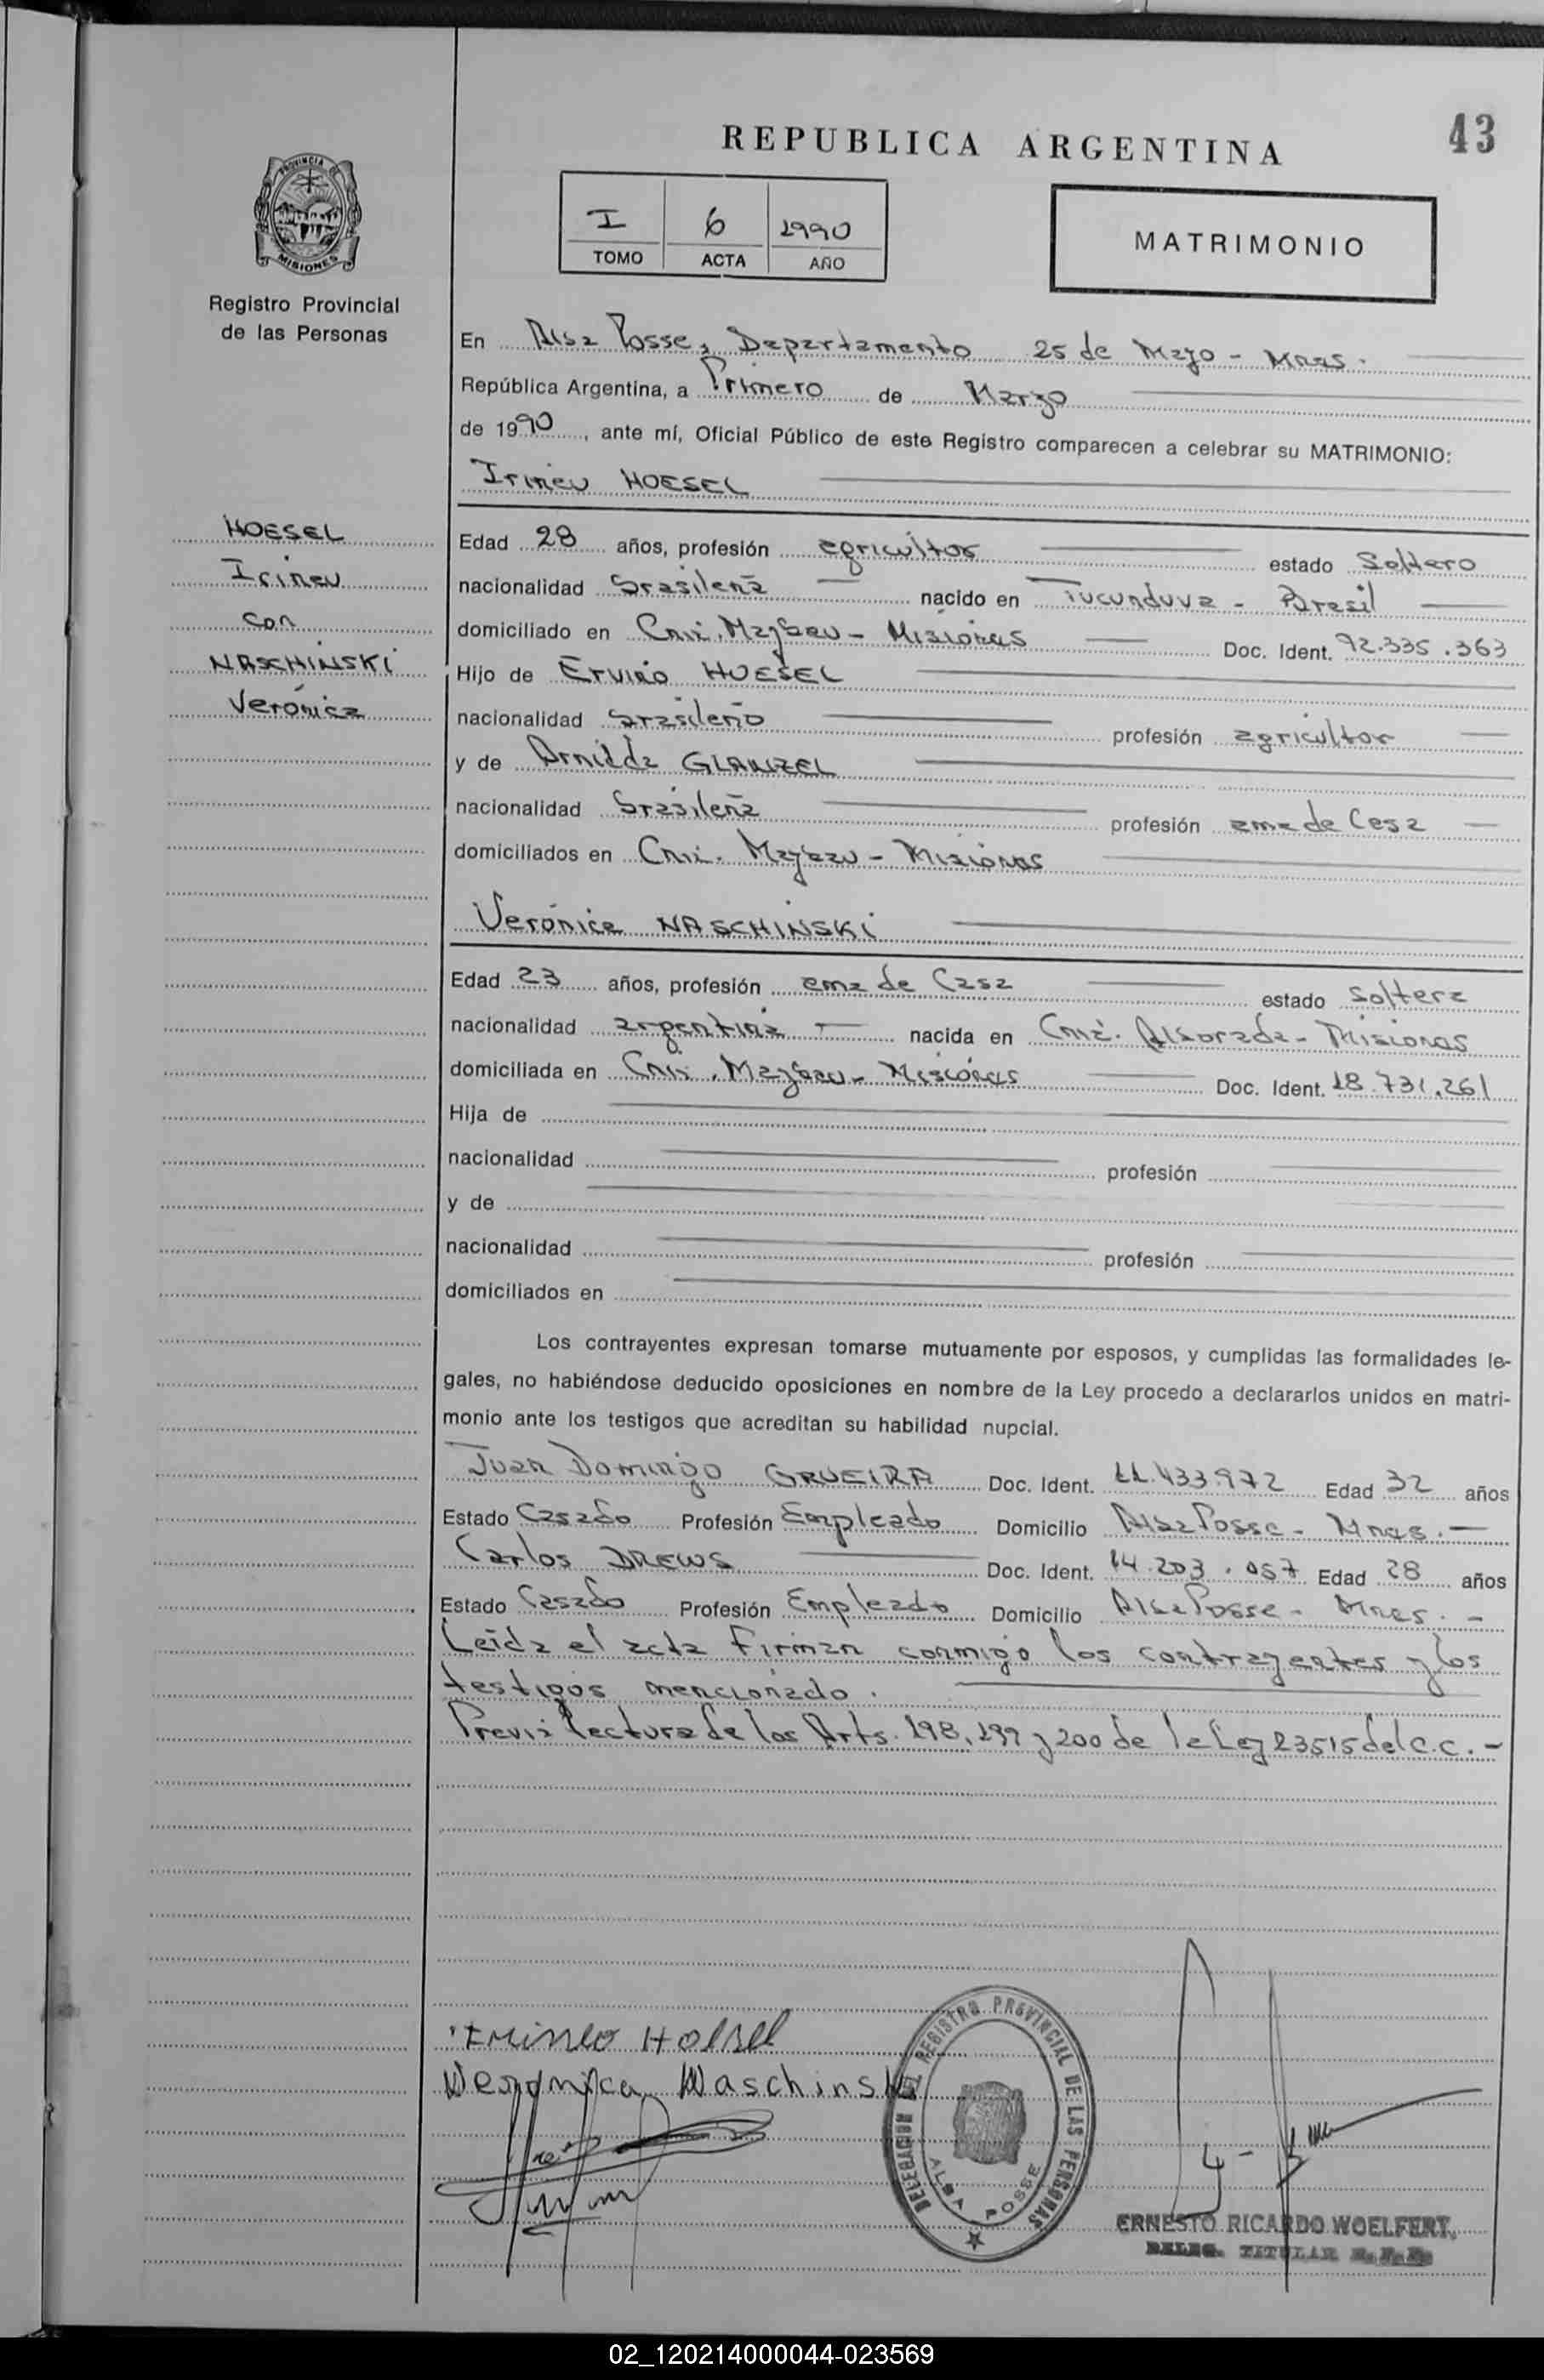 43
REPUBLICA ARGENTINA
PROVINCIA DE
MISIONES
Registro Provincial
de las Personas
I 6 1990
TOMO ACTA AÑO
MATRIMONIO
En Alba Posse, Departamento 25 de Mayo - Mnes.
República Argentina, a Primero de Marzo
de 1990, ante mí, Oficial Público de este Registro comparecen a celebrar su MATRIMONIO:
Irineu HOESEL
HOESEL
Irineu
con
NASCHINSKI
Verónica
Edad 28 años, profesión agricultor estado Soltero
nacionalidad brasileña nacido en Tucunduva - Brasil
domiciliado en Cnia. Maybau - Misiones Doc. Ident. 92.335.363
Hijo de Ervino HOESEL
nacionalidad brasileño profesión agricultor
y de Arnilda GLANZEL
nacionalidad brasileña profesión ama de Casa
domiciliados en Cnia. Maybau - Misiones
Verónica NASCHINSKI
Edad 23 años, profesión ama de Casa estado Soltera
nacionalidad argentina nacida en Cnia. Alborada - Misiones
domiciliada en Cnia. Maybau - Misiones Doc. Ident. 18.731.261
Hija de
nacionalidad profesión
y de
nacionalidad profesión
domiciliados en
Los contrayentes expresan tomarse mutuamente por esposos, y cumplidas las formalidades le-
gales, no habiéndose deducido oposiciones en nombre de la Ley procedo a declararlos unidos en matri-
monio ante los testigos que acreditan su habilidad nupcial.
Juan Domingo GRUEIRA Doc. Ident. 11.433.972 Edad 32 años
Estado Casado Profesión Empleado Domicilio Alba Posse - Mnes. -
Carlos DREWS Doc. Ident. 14.203.057 Edad 28 años
Estado Casado Profesión Empleado Domicilio Alba Posse - Mnes. -
Leída el acta Firman conmigo los contrayentes y los
testigos mencionado.
Previa lectura de los Arts. 198, 199 y 200 de la Ley 23515 del C.C. -
Irineo Hoesel
Veronica Naschinski
DELEGACION DEL REGISTRO PROVINCIAL DE LAS PERSONAS
ALBA POSSE
ERNESTO RICARDO WOELFERT
DELEG. TITULAR R.P.P.
02_120214000044-023569